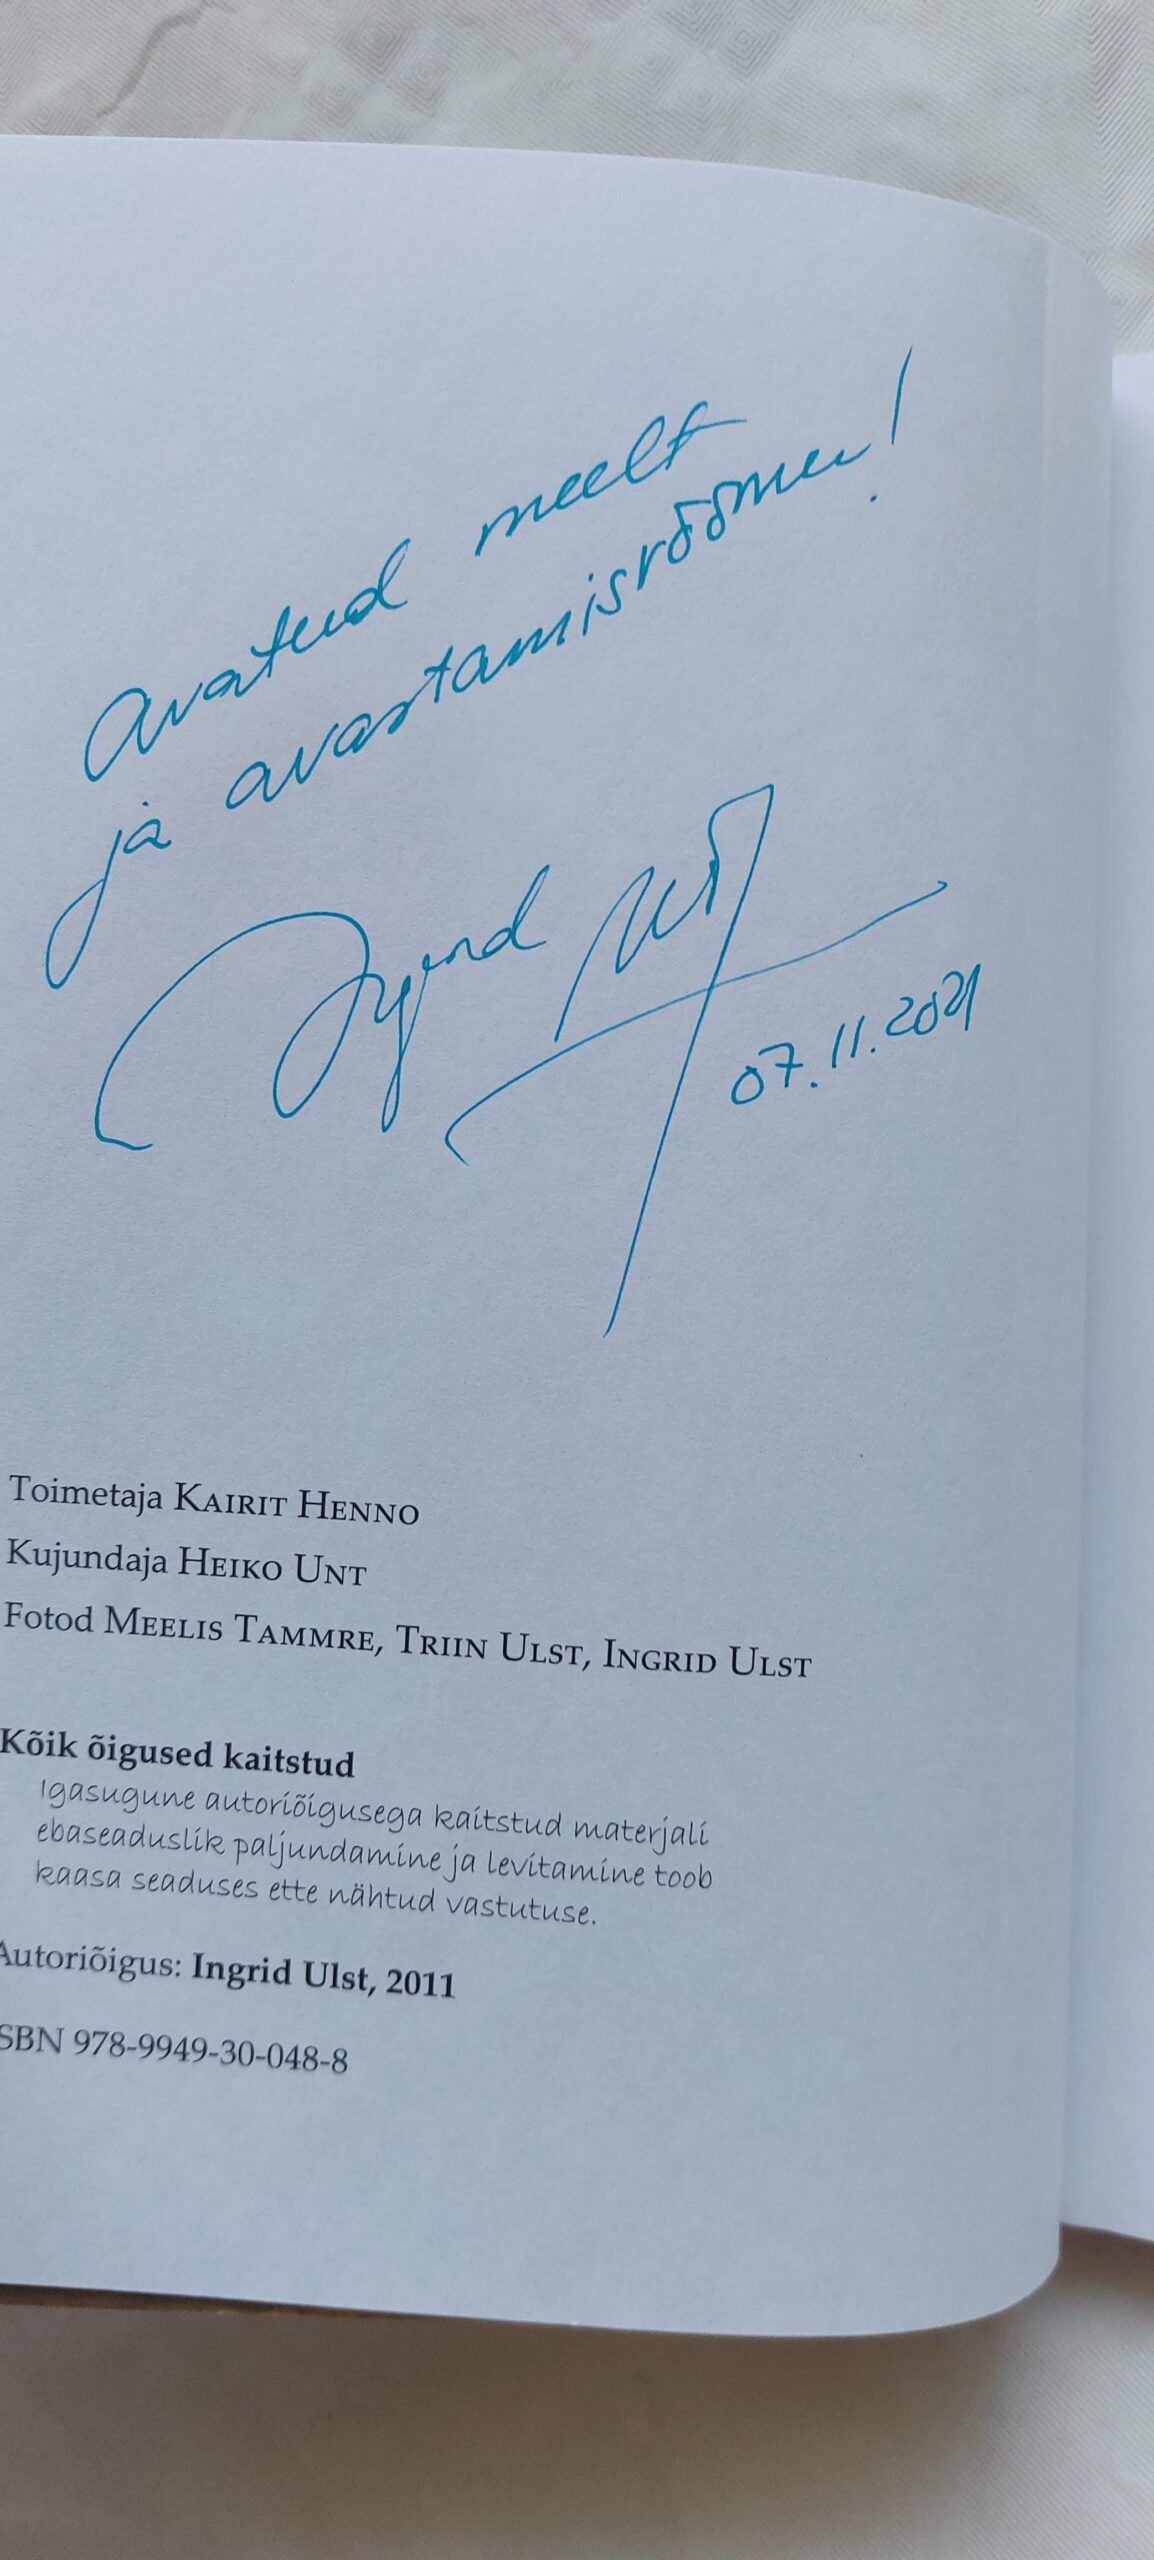 Avatud meelt
ja avastamisrõõmu!
Ingrid Ulst
07.11.2021
Toimetaja KAIRIT HENNO
Kujundaja HEIKO UNT
Fotod MEELIS TAMMRE, TRIIN ULST, INGRID ULST
Kõik õigused kaitstud
Igasugune autoriõigusega kaitstud materjali
ebaseaduslik paljundamine ja levitamine toob
kaasa seaduses ette nähtud vastutuse.
Autoriõigus: Ingrid Ulst, 2011
SBN 978-9949-30-048-8